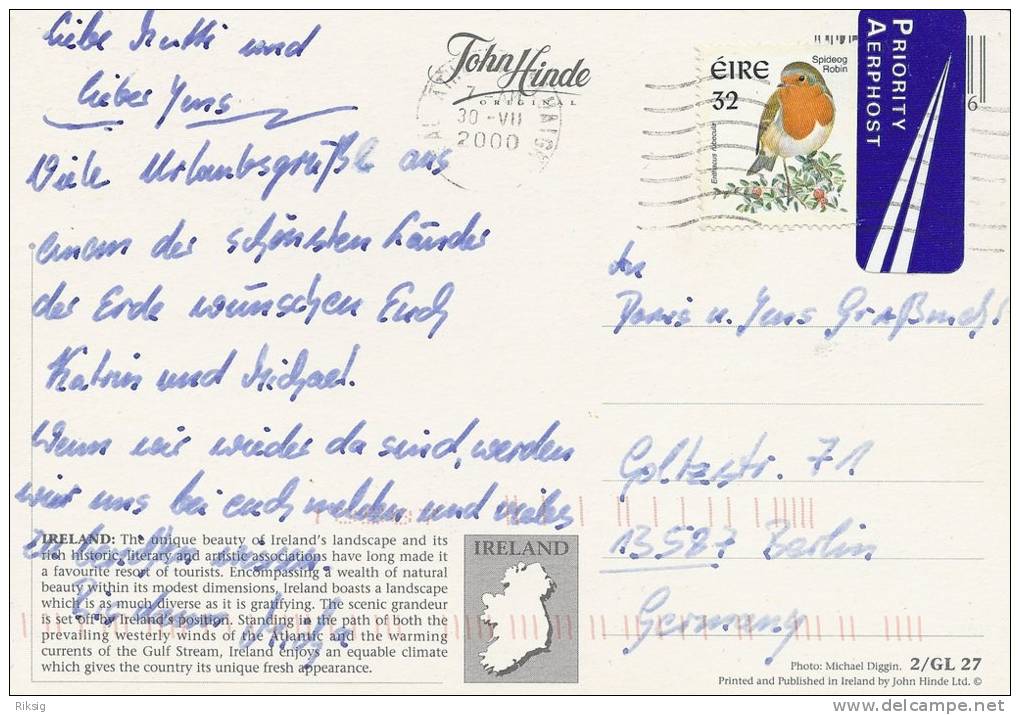 Liebe Mutti und
lieber Jens
Viele Urlaubsgrüße aus
einem der schönsten Länder
der Erde wünschen Euch
Katrin und Michael.
Wenn wir wieder da sind, werden
wir uns bei euch melden und vieles
zu
Bis dann
John Hinde
ORIGINAL
7
30-VII
2000
ÉIRE
32
Spideog
Robin
Erithacus rubecula
PRIORITY
AERPHOST
6
An
Doris u. Jens
Goltzstr. 71
13587 Berlin
Germany
IRELAND: The unique beauty of Ireland's landscape and its
rich historic, literary and artistic associations have long made it
a favourite resort of tourists. Encompassing a wealth of natural
beauty within its modest dimensions, Ireland boasts a landscape
which is as much diverse as it is gratifying. The scenic grandeur
is set off by Ireland's position. Standing in the path of both the
prevailing westerly winds of the Atlantic and the warming
currents of the Gulf Stream, Ireland enjoys an equable climate
which gives the country its unique fresh appearance.
IRELAND
Photo: Michael Diggin. 2/GL 27
Printed and Published in Ireland by John Hinde Ltd. ©
Riksig
www.delcampe.net